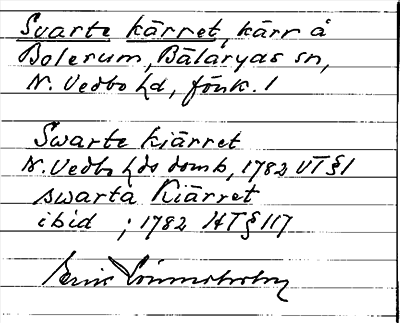 Svarte kärret, kärr å
Bolerum, Bälaryds sn,
N. Vedbo hd, förk. 1
Swarte kiärret
N. Vedbo hds domb, 1782 VT § 1
swarta Kiärret
ibid ; 1782 HT § 117
Erik